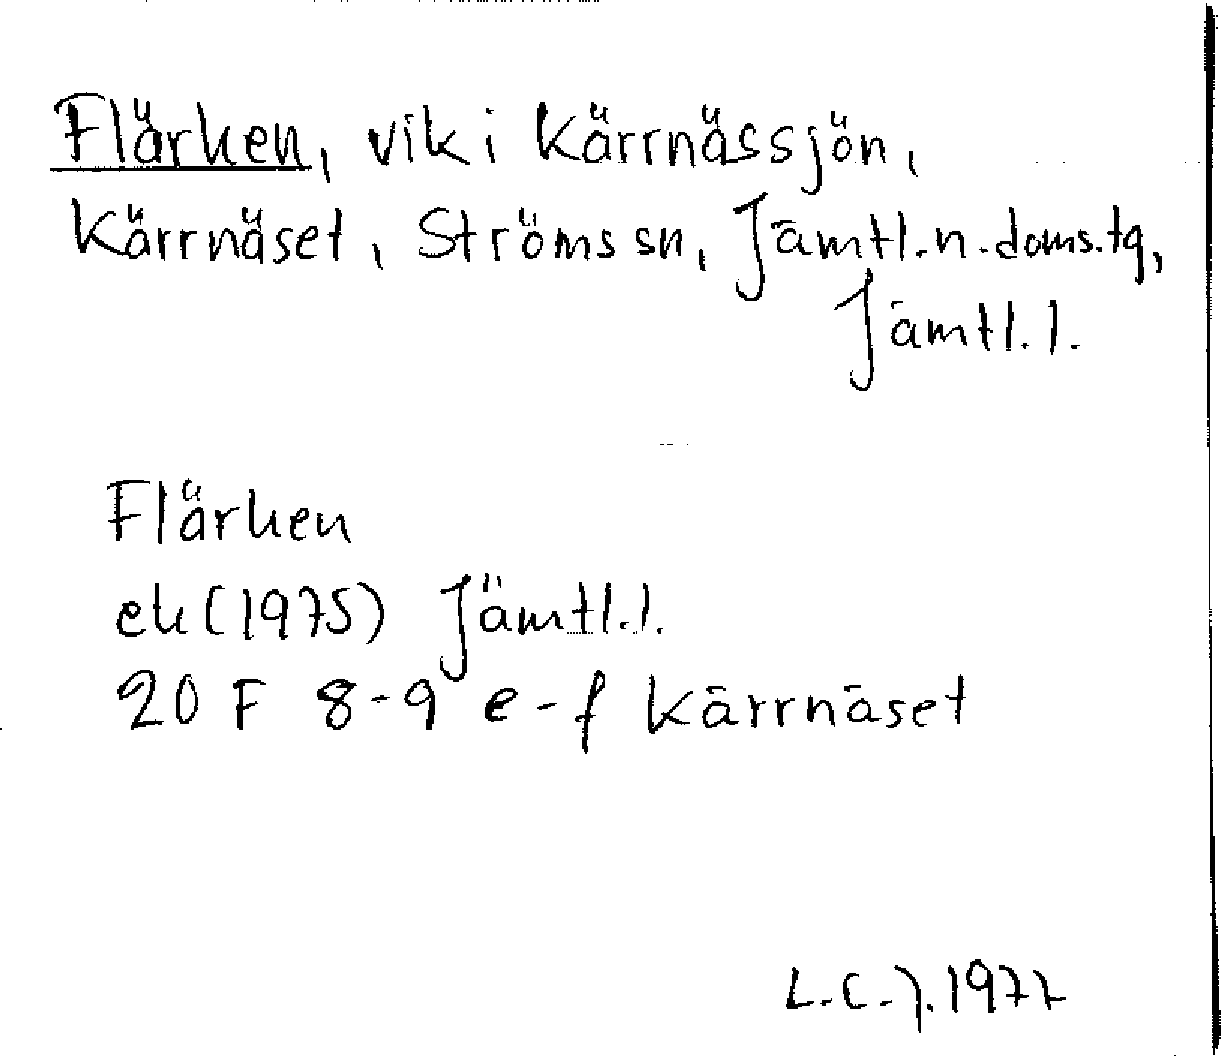 Flärken, vik i Kärrnässjön,
Kärrnäset, Ströms sn, Jämtl. n. doms. tg,
Jämtl. l.
Flärken
ek (1975) Jämtl. l.
20 F 8-9 e-f Kärrnäset
L. C. J. 1977